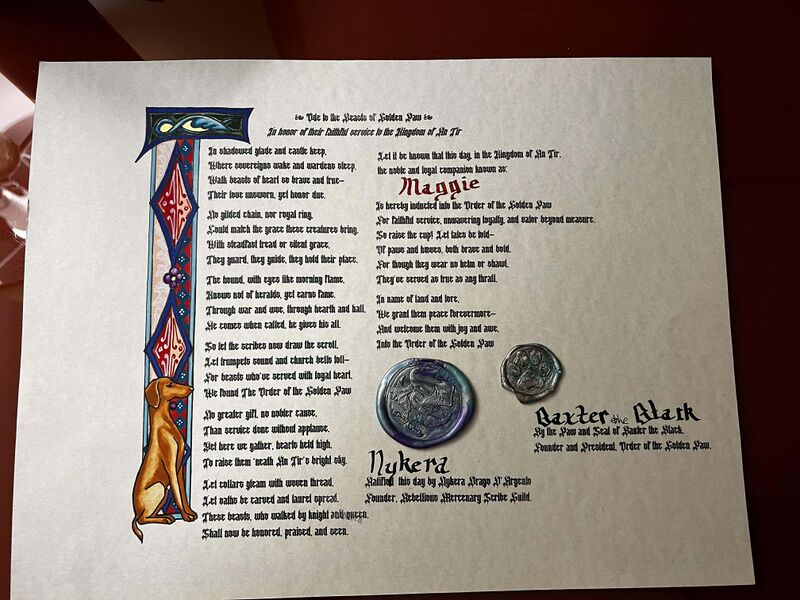 Ode to the Beasts of Golden Paw
In honor of their faithful service to the Kingdom of An Tir
In shadowed glade and castle keep,
Where sovereigns wake and wardens sleep,
Walk beasts of heart so brave and true—
Their love unsworn, yet honor due.
No gilded chain, nor royal ring,
Could match the grace these creatures bring.
With steadfast tread or silent grace,
They guard, they guide, they hold their place.
The hound, with eyes like morning flame,
Knows not of heralds, yet earns fame.
Through war and woe, through hearth and hall,
He comes when called, he gives his all.
So let the scribes now draw the scroll,
Let trumpets sound and church bells toll—
For beasts who've served with loyal heart,
We found The Order of the Golden Paw
No greater gift, no nobler cause,
Than service done without applause.
Yet here we gather, hearts held high,
To raise them 'neath An Tir's bright sky.
Let collars gleam with woven thread,
Let oaths be carved and laurel spread.
These beasts, who walked by knight and queen,
Shall now be honored, praised, and seen.
Let it be known that this day, in the Kingdom of An Tir,
the noble and loyal companion known as:
Maggie
Is hereby inducted into the Order of the Golden Paw
For faithful service, unwavering loyalty, and valor beyond measure.
So raise the cup! Let tales be told—
Of paws and hooves, both brave and bold.
For though they wear no helm or shawl,
They've served as true as any thrall.
In name of land and lore,
We grant them peace forevermore—
And welcome them with joy and awe,
Into the Order of the Golden Paw
Baxter the Black
By the Paw and Seal of Baxter the Black,
Founder and President, Order of the Golden Paw.
Nykera
Ratified this day by Nykera Drago D'Argento
Founder, Rebellious Mercenary Scribe Guild.